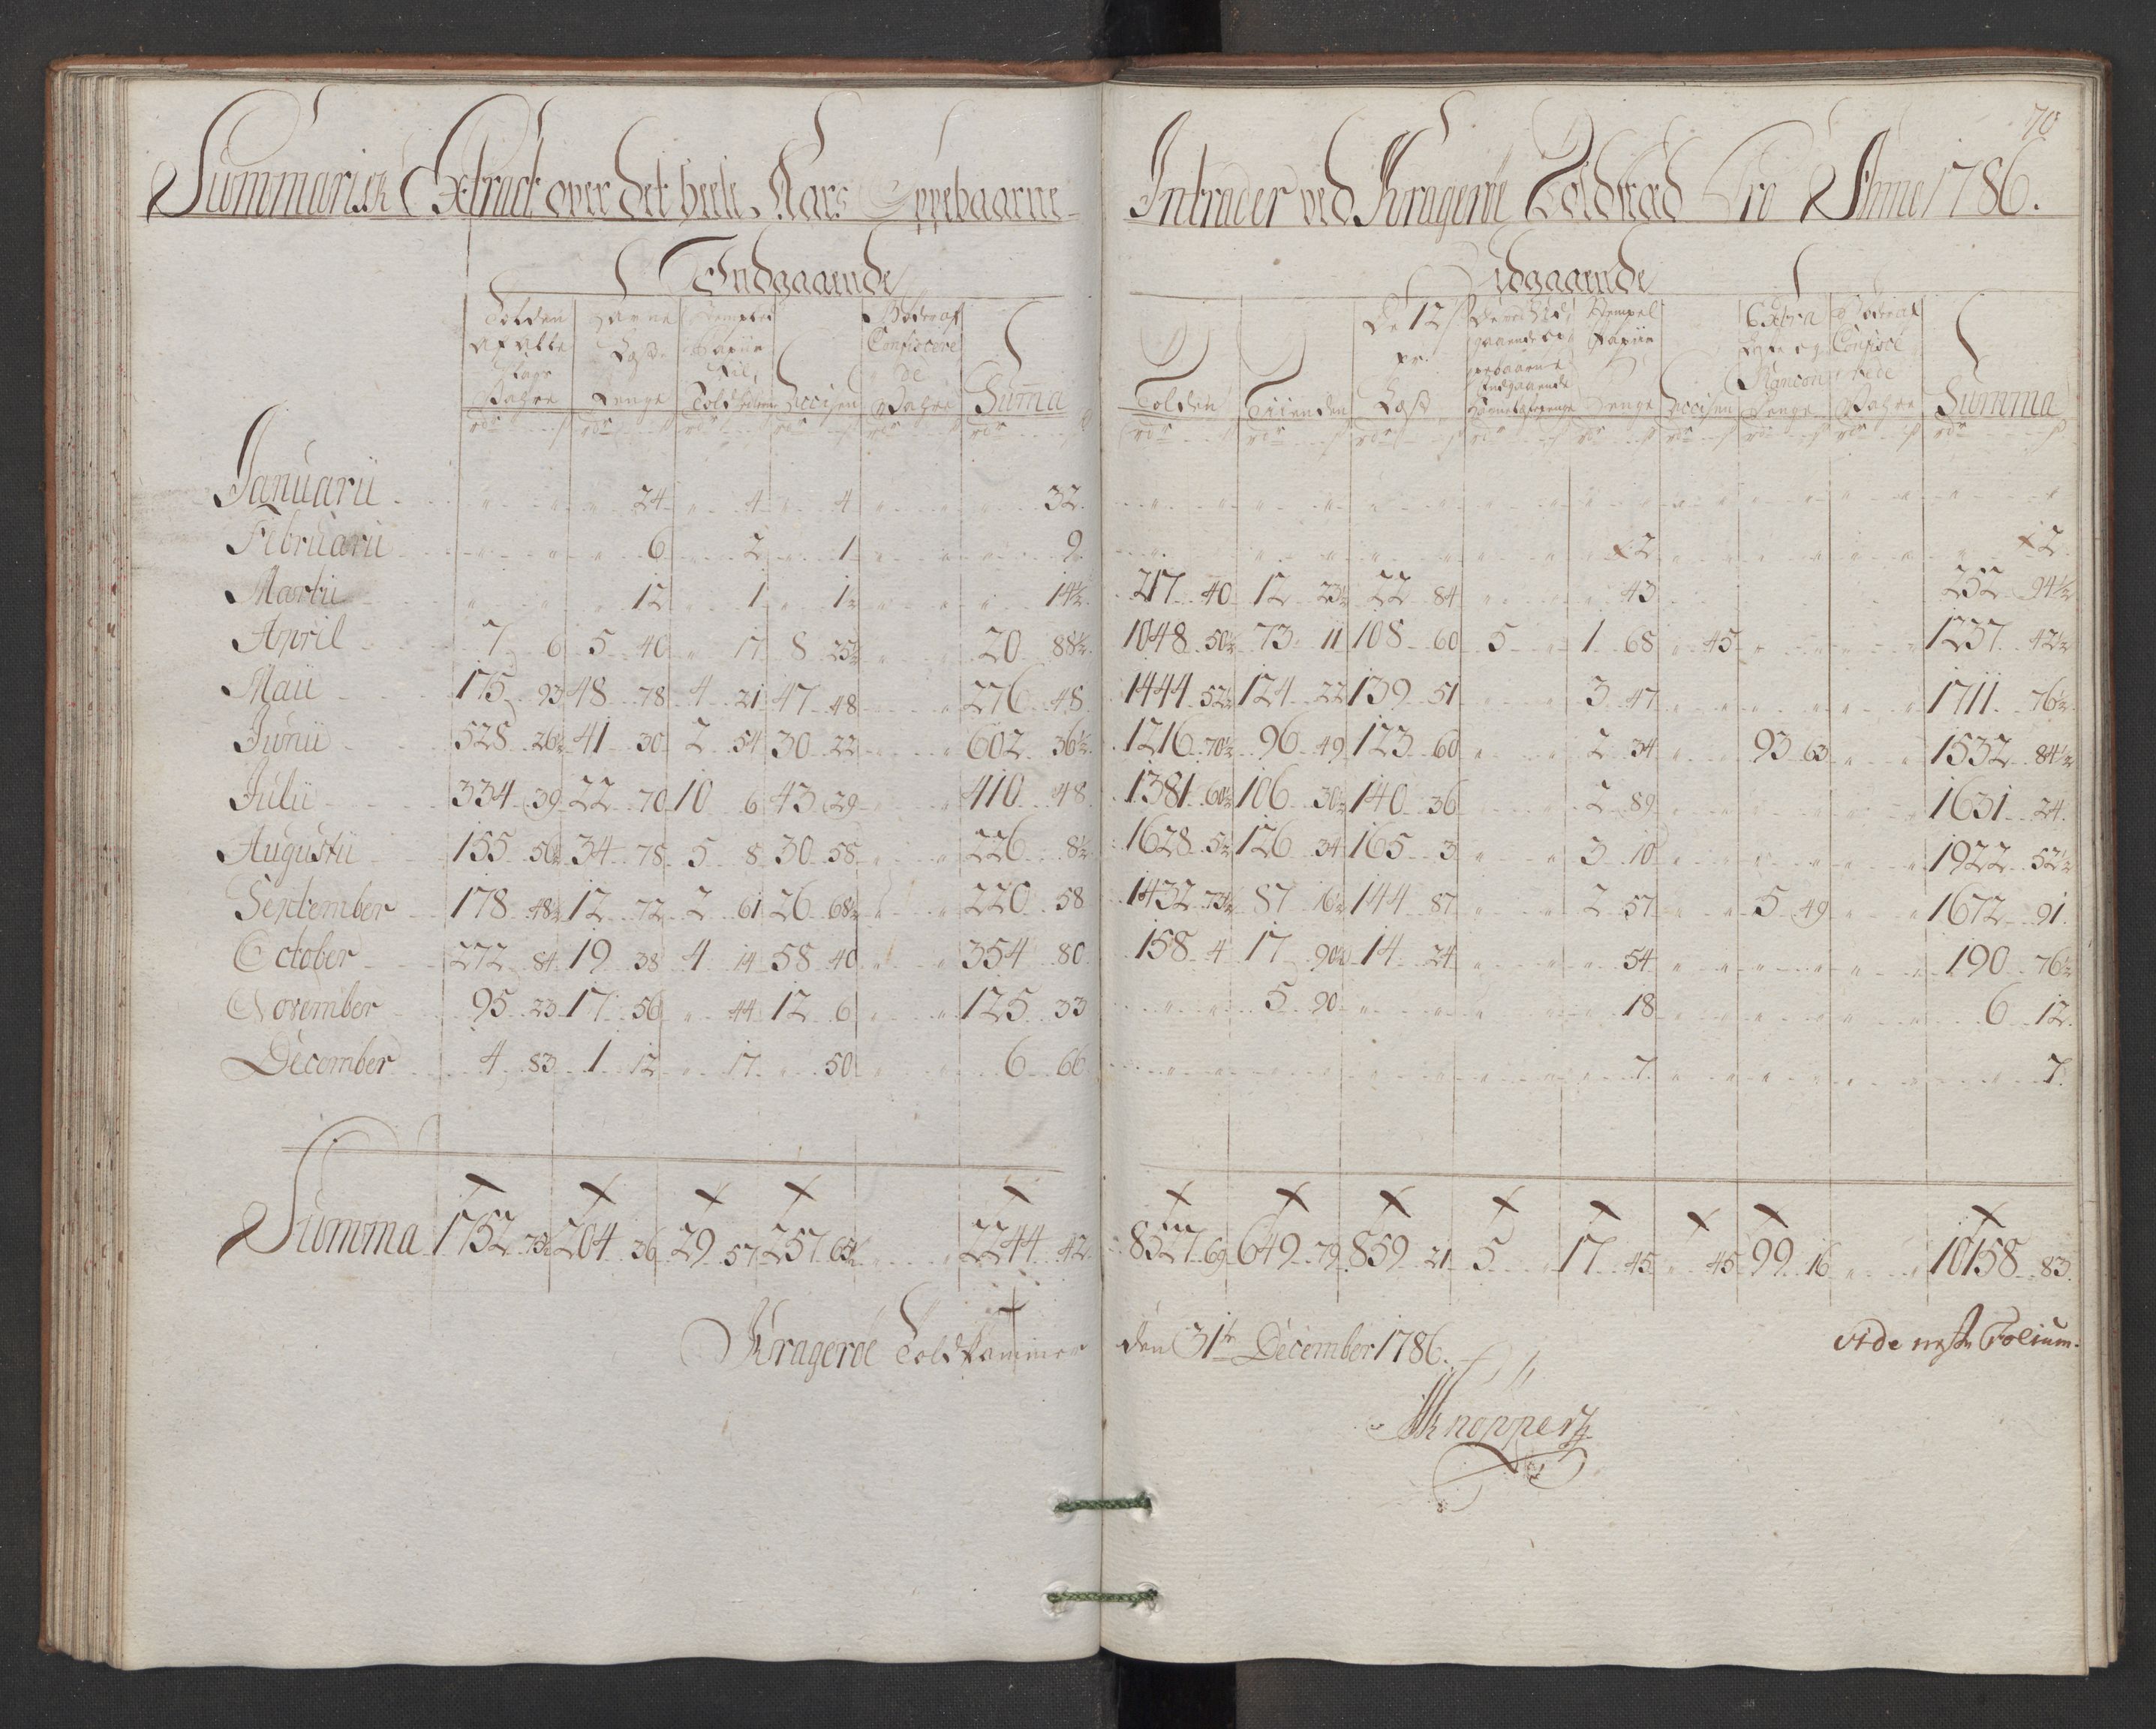 70
Summarisk Extract over det heele Aars Oppebaarne Intrader ved Krageröe Toldsted Pro Anno 1786.
Indgaaende
Tolden af alle Slags Vahre | Havne Læste Penge | Stemplet Papiir til Toldsedler | Accisen | Bøder af Confiscerede Vahre | Suma
rdr s | rdr s | rdr s | rdr s | rdr s | rdr s
Januarii 24 4 4 32.
Februarii 6 2 1 9
Martii 12 1 1½ 14½.
April 7 6 5 40 17 8 25½ 20 88½.
Maii 175 93 48 78 4 21 47 48 276 48
Junii 528 26½ 41 30 2 54 30 22 602 36½
Julii 334 39 22 70 10 6 43 29 410 48
Augustii 155 56½ 34 78 5 8 30 58 226 8½
September 178 48½ 12 72 2 61 26 68½ 220 58
October 272 84 19 38 4 14 58 40 354 80
November 95 23 17 56 44 12 6 125 33
December 4 83 1 12 17 50 6 66
Summa 1752 75½ 204 36 29 57 257 65½ 2244 42
Krageröe Toldkammer
Udgaaende
Tolden | Tiienden | De 12 s pr. Læst | De ved Udgaaende oppebaarne Indgaaende Havne Læstepenge | Stempel Papiir Penge | Accisen | Extra Penge | Bøder af Confiscerede Vahre | Summa
rdr s | rdr s | rdr s | rdr s | rdr s | rdr s | rdr s | rdr s | rdr s
x 2 x 2.
217 40 12 23½ 22 84 43 252 94½
1048 50½ 73 11 108 60 5 1 68 45 1237 42½
1444 52½ 124 22 139 51 3 47 1711 76½
1216 70½ 96 49 123 60 2 34 93 63 1532 84½
1381 60½ 106 30½ 140 36 2 89 1631 24.
1628 5½ 126 34 165 3 3 10 1922 52½
1432 73½ 87 16½ 144 87 2 57 5 49 1672 91.
158 4 17 90½ 14 24 54 190 76½
5 90 18 6 12.
7. 7.
8527 69 649 79 859 21 5 17 45 45 99 16 10158 83.
den 31te December 1786.
Vide neste Folium.
Knopper